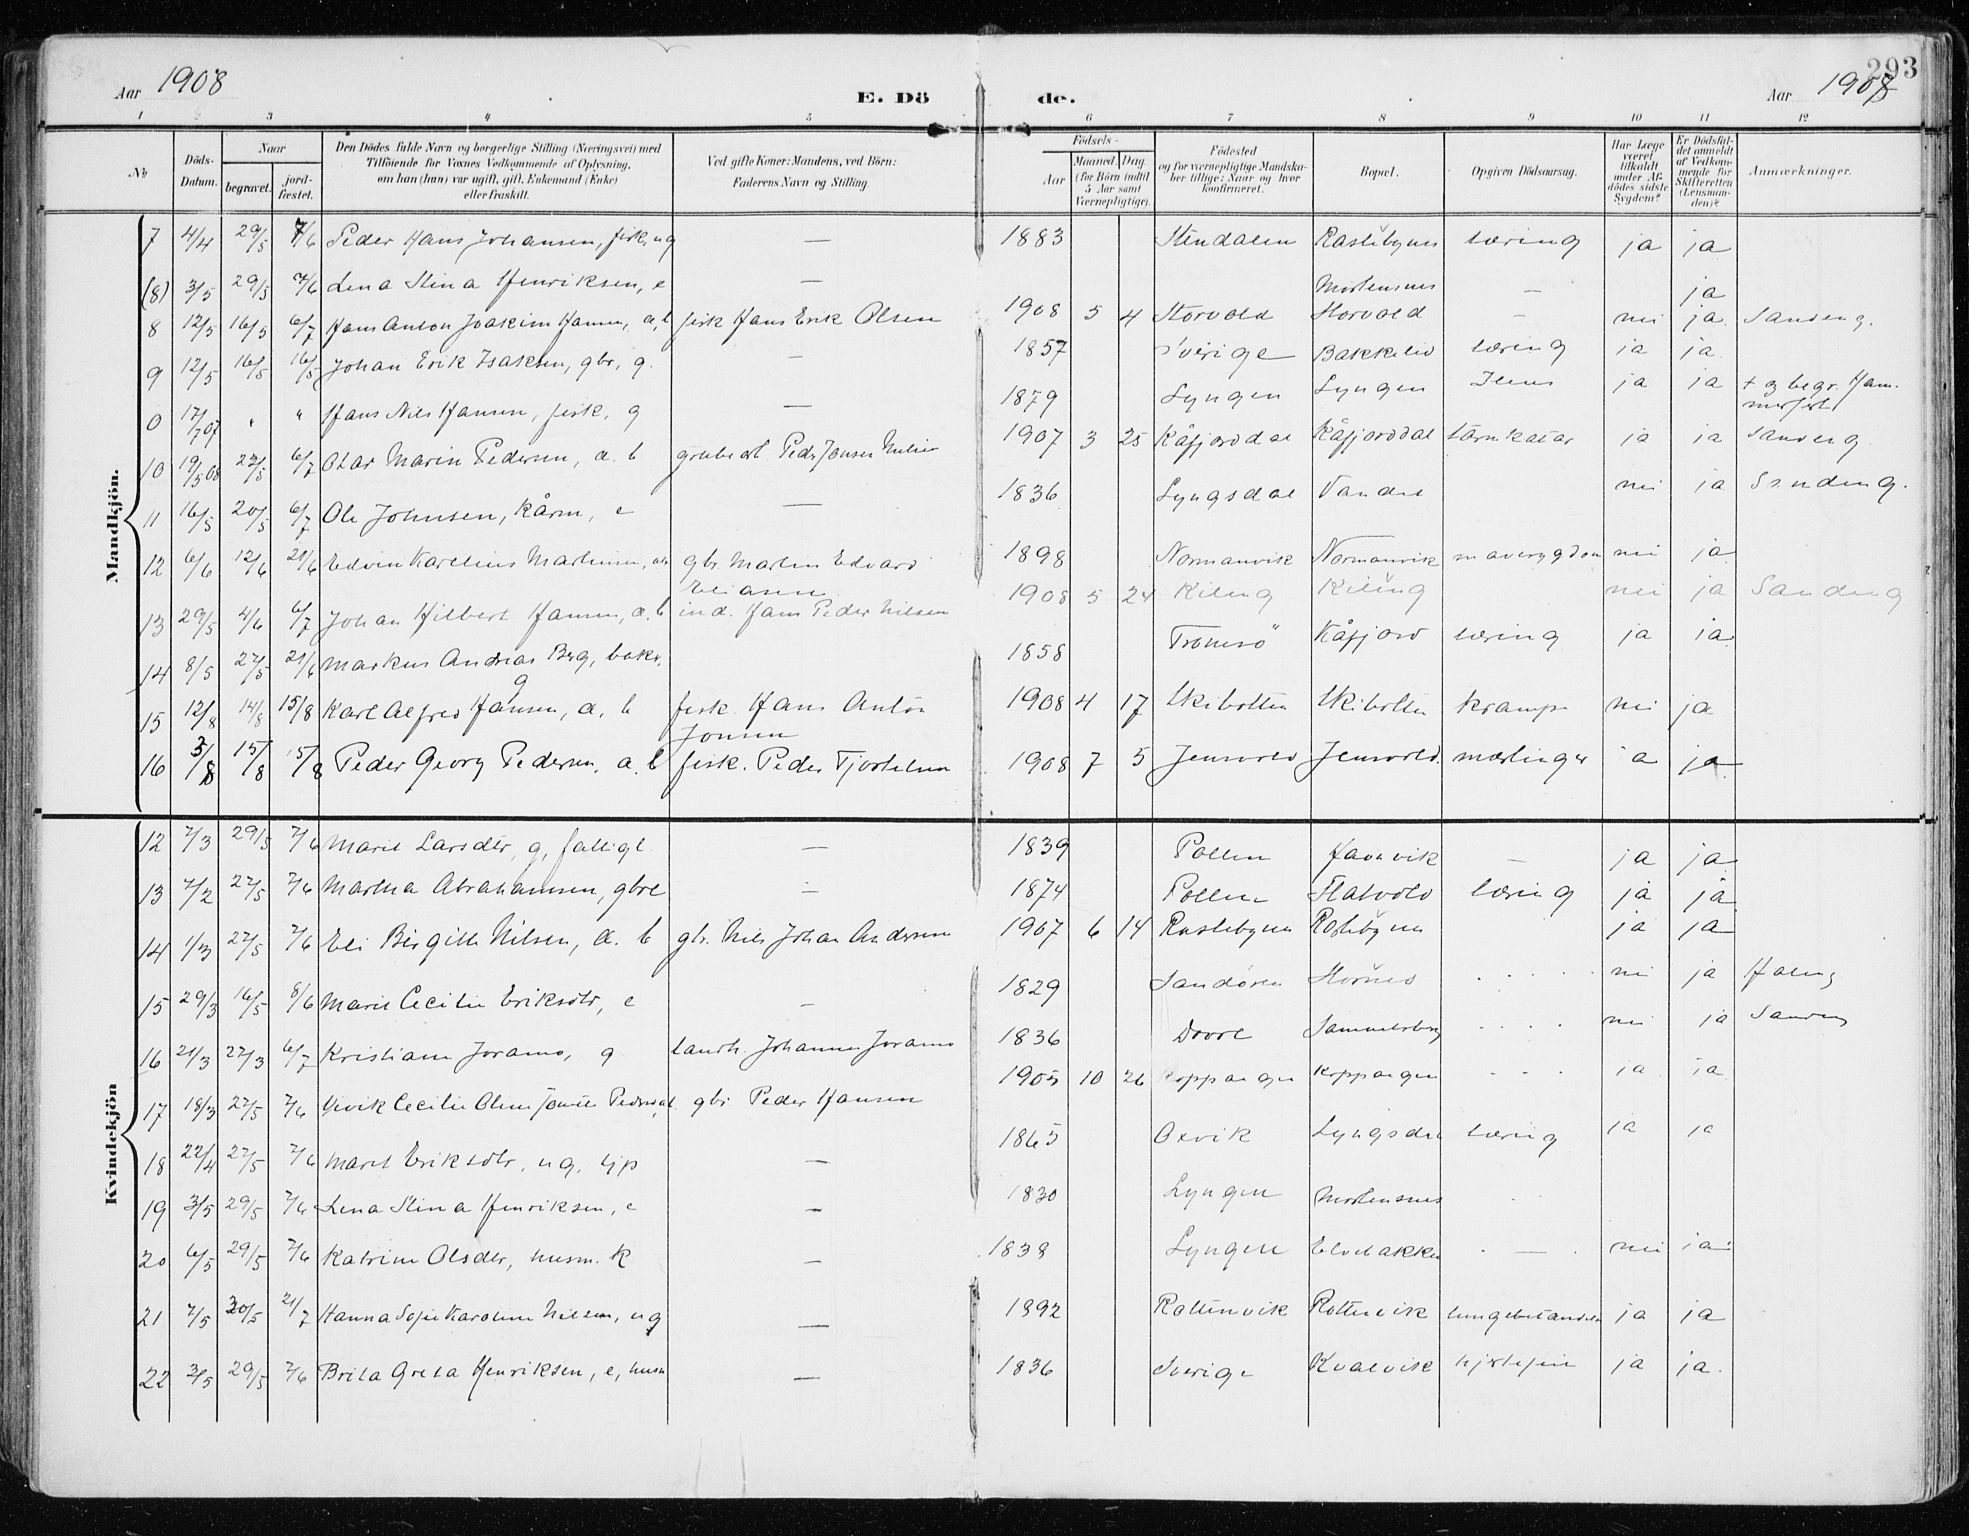 293
Aar 1908 E. Dö de. Aar 1908
1 2 3 4 5 6 7 8 9 10 11 12
No
Döds-Datum.
Naar
begravet. jordfæstet.
Den Dödes fulde Navn og borgerlige Stilling (Næringsvei) med
Tilföiende for Voxnes Vedkommende af Oplysning.
om han (hun) var ugift, gift, Enkemand (Enke)
eller fraskilt.
Ved gifte Koner: Mandens, ved Börn:
Faderens Navn og Stilling.
Födsels-
Aar Maaned. Dag.
(for Börn indtil
5 Aar samt
Værnepligtige).
Födested
og for værnepligtige Mandska-
ber tillige: Naar og hvor
konfirmeret.
Bopæl.
Opgiven Dödsaarsag.
Har Læge
været
tilkaldt
under Af-
dödes sidste
Sygdom?
Er Dödsfal-
det anmeldt
af Vedkom-
mende for
Skifteretten
(Lensman-
den)?
Anmærkninger.
Mandkjön.
7 4/4 29/5 7/6 Peder Hans Johansen, fisk, ug — 1883 Stendalen Rastebynes tæring ja ja
(8) 3/5 29/5 7/6 Lena Stina Henriksen, e — Mortensnes — ja
8 12/5 16/5 6/7 Hans Anton Joakim Hansen, a, b fisk Hans Erik Olsen 1908 5 4 Storvold Storvold — nei ja Sandeng.
9 12/5 16/5 16/5 Johan Erik Isaksen, gbr, g. — 1857 Sverige Bakkelid tæring ja ja
0 17/7 07 " " Hans Nils Hansen, fisk, g — 1879 Lyngen Lyngen ja ja + og begr. Ham-
merfest
10 19/5 08 22/5 6/7 Olav Marin Pedersen, a. b grubearb. Peder Jonsen Nilsen 1907 3 25 Kåfjorddal Kåfjorddal tarmkatar ja ja Sandeng
11 16/5 20/5 6/7 Ole Johnsen, kårm, e — 1836 Lyngsdal Vandet nei ja Sandeng.
12 6/6 12/6 21/6 Edvin Karelius Martinsen, gbr Martin Edvard
Eliasen 1898 Normanvik Normanvik mavesygdom nei ja
13 29/5 4/6 6/7 Johan Hilbert Hansen, a. b ind. Hans Peder Nilsen 1908 5 24 Kileng Kileng nei ja Sandeng
14 8/5 27/5 21/6 Markus Andreas Berg, baker,
g 1858 Tromsö Kåfjord tæring ja ja
15 12/8 14/8 15/8 Karl Alfred Hansen, a, b fisk. Hans Anton
Jonsen 1908 4 17 Skibotten Skibotten krampe nei ja
16 3/8 15/8 15/8 Peder Georg Pedersen, a. b fisk. Peder 1908 7 5 Jensvold Jensvold mæslinger ja ja
Kvindekjön
12 7/3 29/5 7/6 Marie Larsdtr, g, fattigl. — 1839 Pollen Havnvik — ja ja
13 7/2 27/5 7/6 Martha Abrahamsen, gbre — 1874 Pollen Flatvold tæring ja ja
14 1/3 27/5 7/6 Eli Birgitte Nilsen, a. b gbr. Nils Johan Andersen 1907 6 14 Rastebynes Rastebynes ja ja
15 29/3 16/5 8/6 Marie Cecilie Eriksdtr, e — 1829 Sandören nei ja
16 21/3 27/3 6/7 Kristiane Joramo, g landh. Johannes Joramo 1836 Dovre nei ja Sandeng
17 18/3 27/5 7/6 Cecilie Oline Pedersen gbr. Peder Hansen 1905 10 26 Koppangen Koppangen ja ja
18 22/4 27/5 7/6 Marit Eriksdtr, ug, tjp — 1865 Oxvik Lyngsdal tæring ja ja
19 3/5 29/5 7/6 Lena Stina Henriksen, e — 1830 Lyngen Mortensnes
20 6/5 29/5 7/6 Katrine Olsdtr, husm. k — 1838 Lyngen Elvebakken — nei ja
21 7/5 30/5 21/7 Hanna Sofie Karoline Nilsen, ug — 1892 Rottenvik Rottenvik lungebetændelse ja ja
22 2/5 29/5 7/6 Brita Greta Henriksen, e, husm — 1836 Sverige Kvalvik hjertefeil ja ja